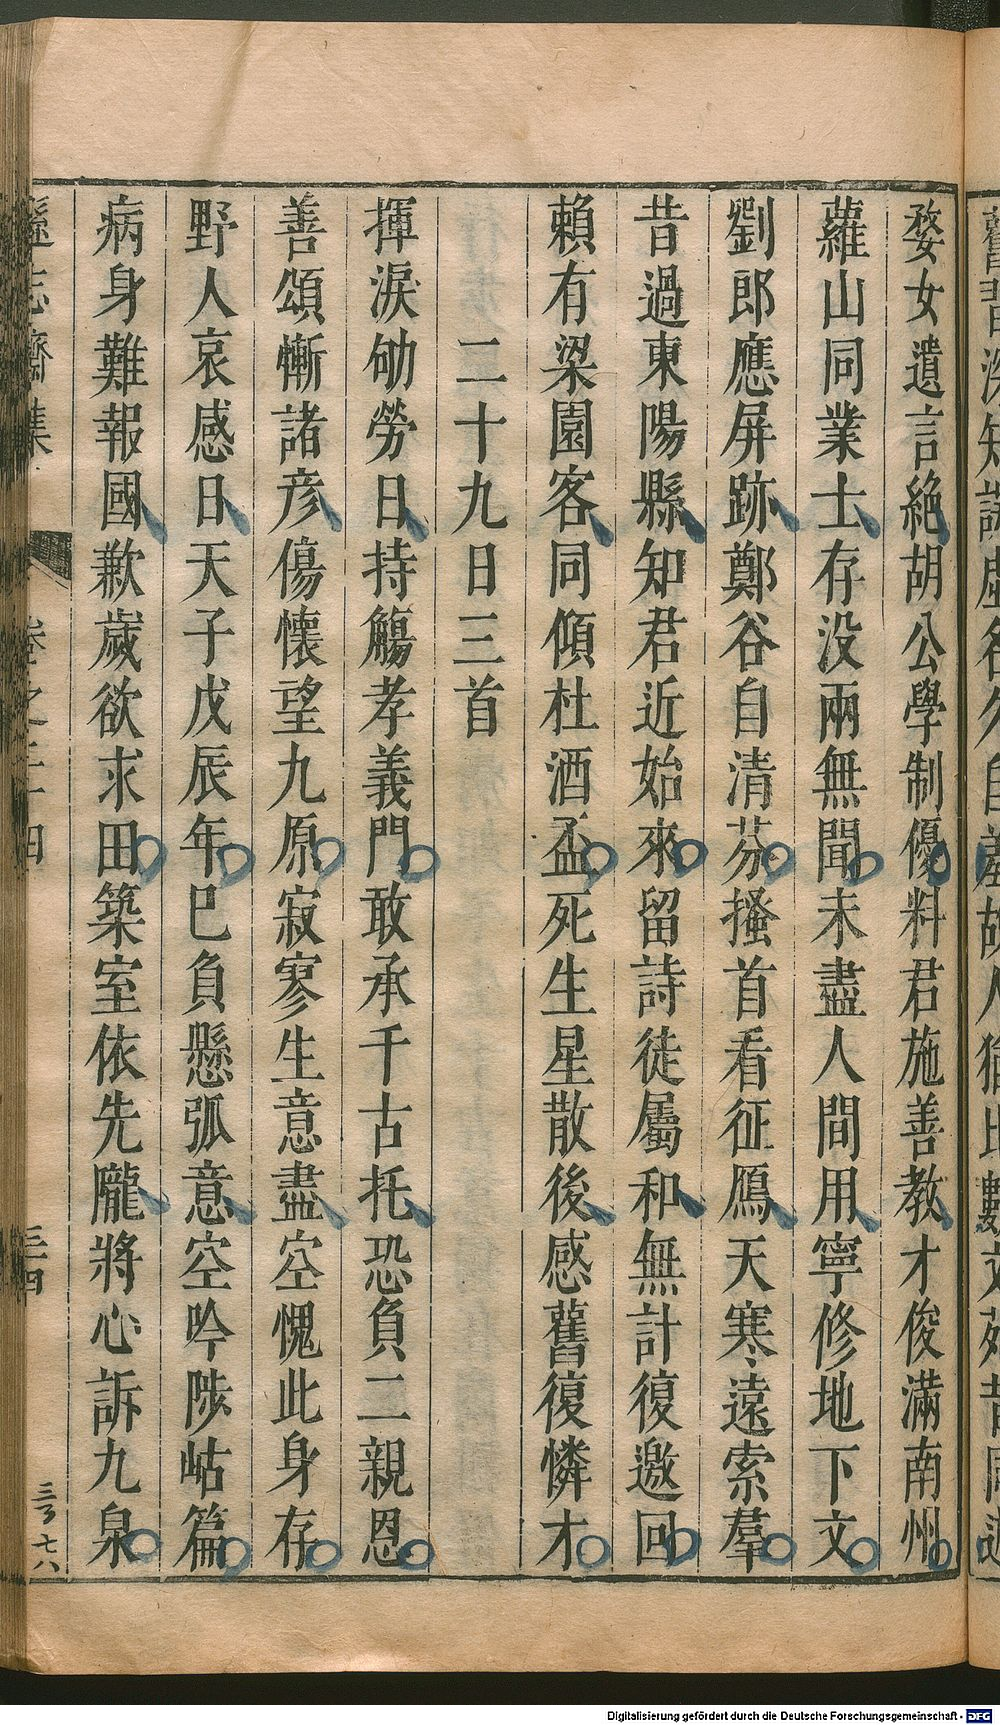 婺女遺言絶胡公學制優料君施善教才俊滿南州
蘿山同業士存没兩無聞未盡人間用寧修地下文
劉郎應屏跡鄭谷自清芬搔首看征鴈天寒遠索羣
昔過東陽縣知君近始來留詩徒屬和無計復邀回
賴有梁園客同傾杜酒盃死生星散後感舊復憐才
二十九日三首
揮淚劬勞日持觴孝義門敢承千古托恐負二親恩
善頌慚諸彦傷懷望九原寂寥生意盡空愧此身存
野人哀感日天子戊辰年巳負懸弧意空吟陟岵篇
病身難報國歉歲欲求田築室依先隴將心訴九泉
遜志齋集
卷之二十四
三四
Digitalisierung gefördert durch die Deutsche Forschungsgemeinschaft - DFG